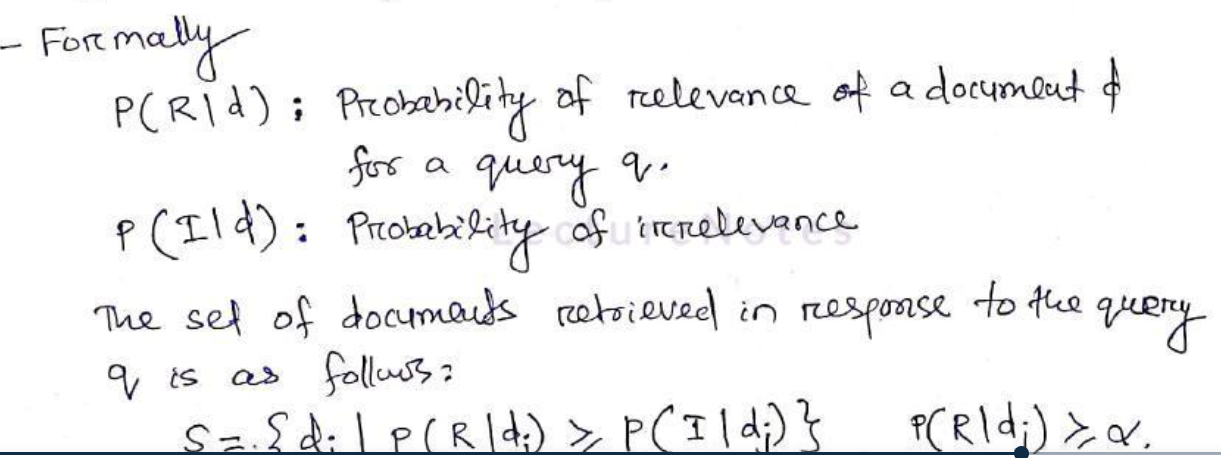 - Formally
P(R|d) : Probability of relevance of a document d
for a query q.
P(I|d) : Probability of irrelevance
LectureNotes
The set of documents retrieved in response to the query
q is as follows:
S = {dj | P(R|dj) ≥ P(I|dj)} P(R|dj) ≥ α.